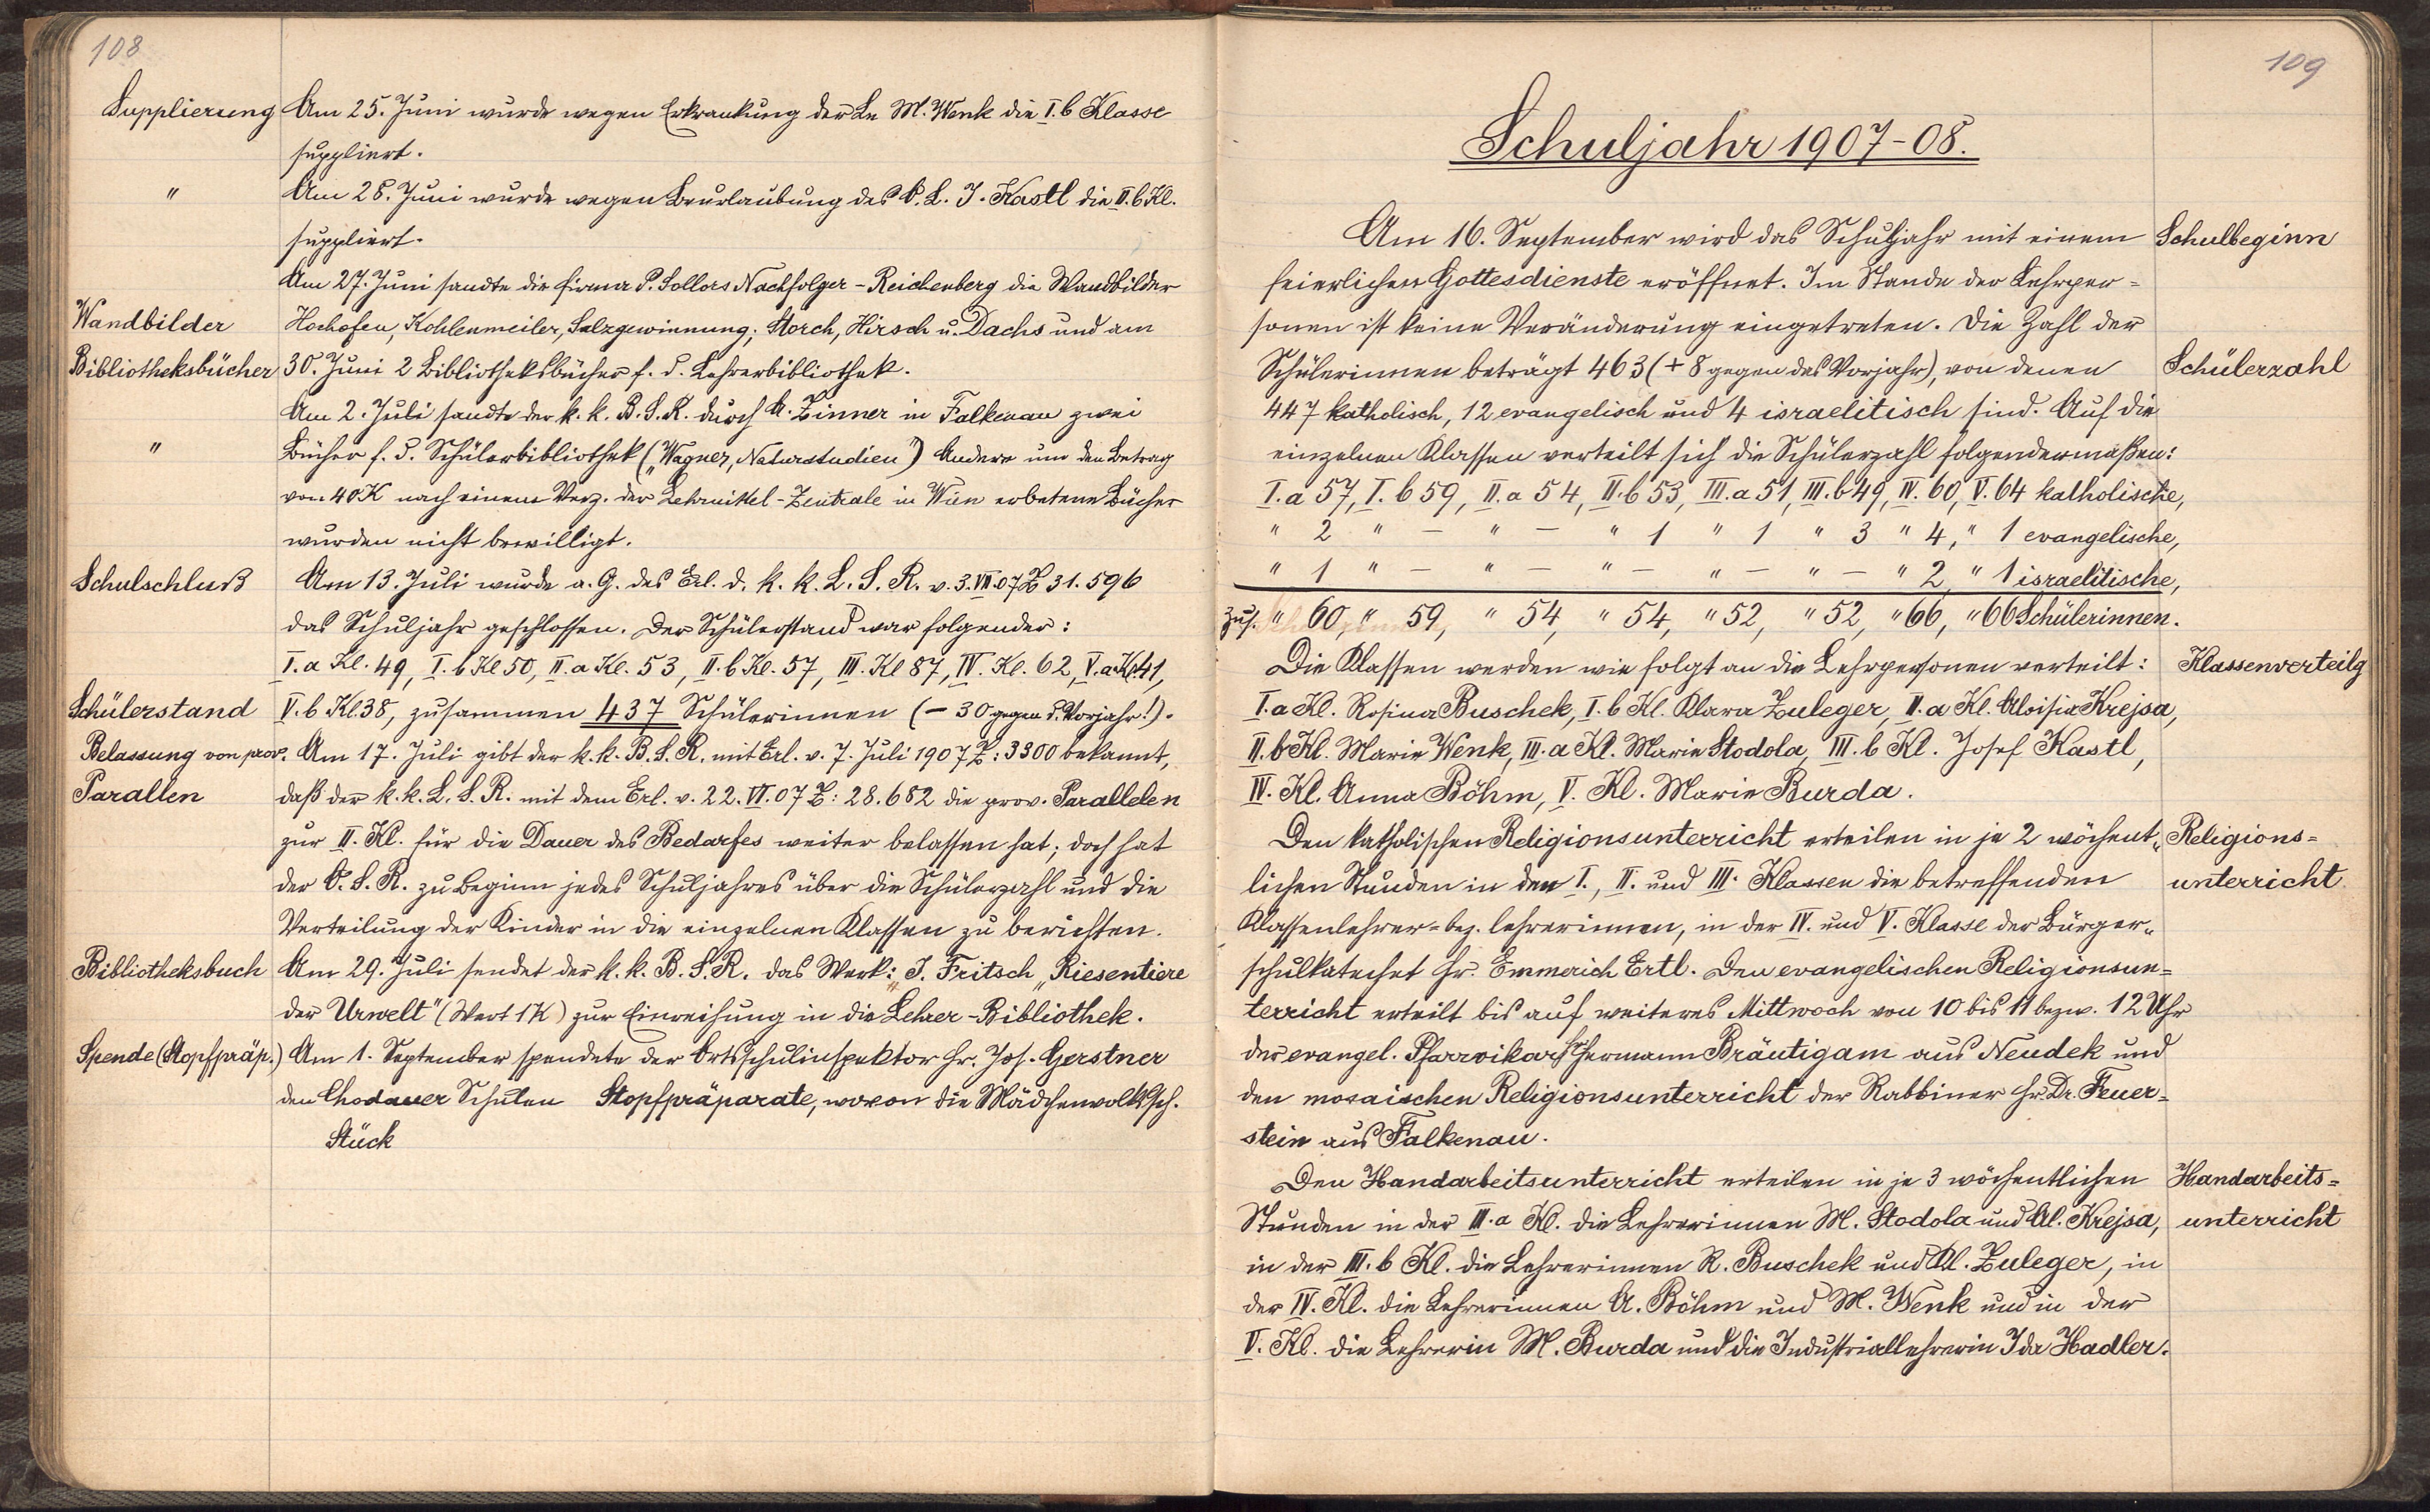 108
Supplierung Am 25. Juni wurde wegen Erkrankung der Ln M. Wenk die I. b Klasse
suppliert.
" Am 28. Juni wurde wegen Beurlaubung des O. L. J. Kastl die II. b Kl.
suppliert.
Am 27. Juni sandte die Firma P. Sollors Nachfolger - Reichenberg die Wandbilder
Wandbilder Hochofen, Kohlenmeiler, Salzgewinnung; Storch, Hirsch u. Dachs und am
Bibliotheksbücher 30. Juni 2 Bibliotheksbücher f. d. Lehrerbibliothek.
Am 2. Juli sandte der k. k. B. S. R. durch A. Zinner in Falkenau zwei
" Bücher f. d. Schülerbibliothek („Wagner, Naturstudien") Andere um den Betrag
von 40 K nach einem Verz. der Lehrmittel-Zentrale in Wien erbetene Bücher
wurden nicht bewilligt.
Schulschluß Am 13. Juli wurde a. G. des Erl. d. k. k. L. S. R. v. 3. VII. 07 Z 31.596
das Schuljahr geschlossen. Der Schülerstand war folgender:
I. a Kl. 49, I. b Kl 50, II. a Kl. 53, II. b Kl. 57, III. Kl 87, IV. Kl. 62, V. a Kl. 41,
Schülerstand V. b Kl. 38, zusammen 437 Schülerinnen (- 30 gegen d. Vorjahr!).
Belassung von prov. Am 17. Juli gibt der k. k. B. S. R. mit Erl. v. 7. Juli 1907 Z: 3300 bekannt,
Parallen daß der k. k. L. S. R. mit dem Erl. v. 22. VI. 07 Z: 28.682 die prov. Parallelen
zur II. Kl. für die Dauer des Bedarfes weiter belassen hat; doch hat
der O. S. R. zu Beginn jedes Schuljahres über die Schülerzahl und die
Verteilung der Kinder in die einzelnen Klassen zu berichten.
Bibliotheksbuch Am 29. Juli sendet der k. k. B. S. R. das Werk: J. Fritsch „Riesentiere
der Urwelt" (Wert 1 K) zur Einreihung in die Lehrer-Bibliothek.
Spende (Stopfpräp.) Am 1. September spendete der Ortsschulinspektor Hr. Jos. Gerstner
den Chodauer Schulen Stopfpräparate, wovon die Mädchenvolkssch.
Stück
109
Schuljahr 1907-08.
Am 16. September wird das Schuljahr mit einem Schulbeginn
feierlichen Gottesdienste eröffnet. Im Stande der Lehrper=
sonen ist keine Veränderung eingetreten. Die Zahl der
Schülerinnen beträgt 463 (+ 8 gegen das Vorjahr), von denen Schülerzahl
447 katholisch, 12 evangelisch und 4 israelitisch sind. Auf die
einzelnen Klassen verteilt sich die Schülerzahl folgendermaßen:
I. a 57, I. b 59, II. a 54, II. b 53, III. a 51, III. b 49, IV. 60, V. 64 katholische,
" 2 " — " — " 1 " 1 " 3 " 4, " 1 evangelische,
" 1 " — " — " — " — " — " 2, " 1 israelitische,
zus. " 60, " 59, " 54, " 54, " 52, " 52, " 66, " 66 Schülerinnen.
Die Klassen werden wie folgt an die Lehrpersonen verteilt: Klassenverteilg
I. a Kl. Rosina Buschek, I. b Kl. Klara Zuleger, II. a Kl. Aloisia Krejsa,
II. b Kl. Marie Wenk, III. a Kl. Marie Stodola, III. b Kl. Josef Kastl,
IV. Kl. Anna Böhm, V. Kl. Marie Burda.
Den katholischen Religionsunterricht erteilen in je 2 wöchent„ Religions=
lichen Stunden in den I., II. und III. Klassen die betreffenden unterricht
Klassenlehrer= bez. lehrerinnen, in der IV. und V. Klasse der Bürger„
schulkatechet Hr. Emmerich Ertl. Den evangelischen Religionsun=
terricht erteilt bis auf weiteres Mittwoch von 10 bis 11 bezw. 12 Uhr
der evangel. Pfarrvikar Hr. Hermann Bräutigam aus Neudek und
den mosaischen Religionsunterricht der Rabbiner Hr. Dr. Feuer=
stein aus Falkenau.
Den Handarbeitsunterricht erteilen in je 3 wöchentlichen Handarbeits=
Stunden in der III. a Kl. die Lehrerinnen M. Stodola und Al. Krejsa, unterricht
in der III. b Kl. die Lehrerinnen R. Buschek und Kl. Zuleger, in
der IV. Kl. die Lehrerinnen A. Böhm und M. Wenk und in der
V. Kl. die Lehrerin M. Burda und die Industriallehrerin Ida Hadler.